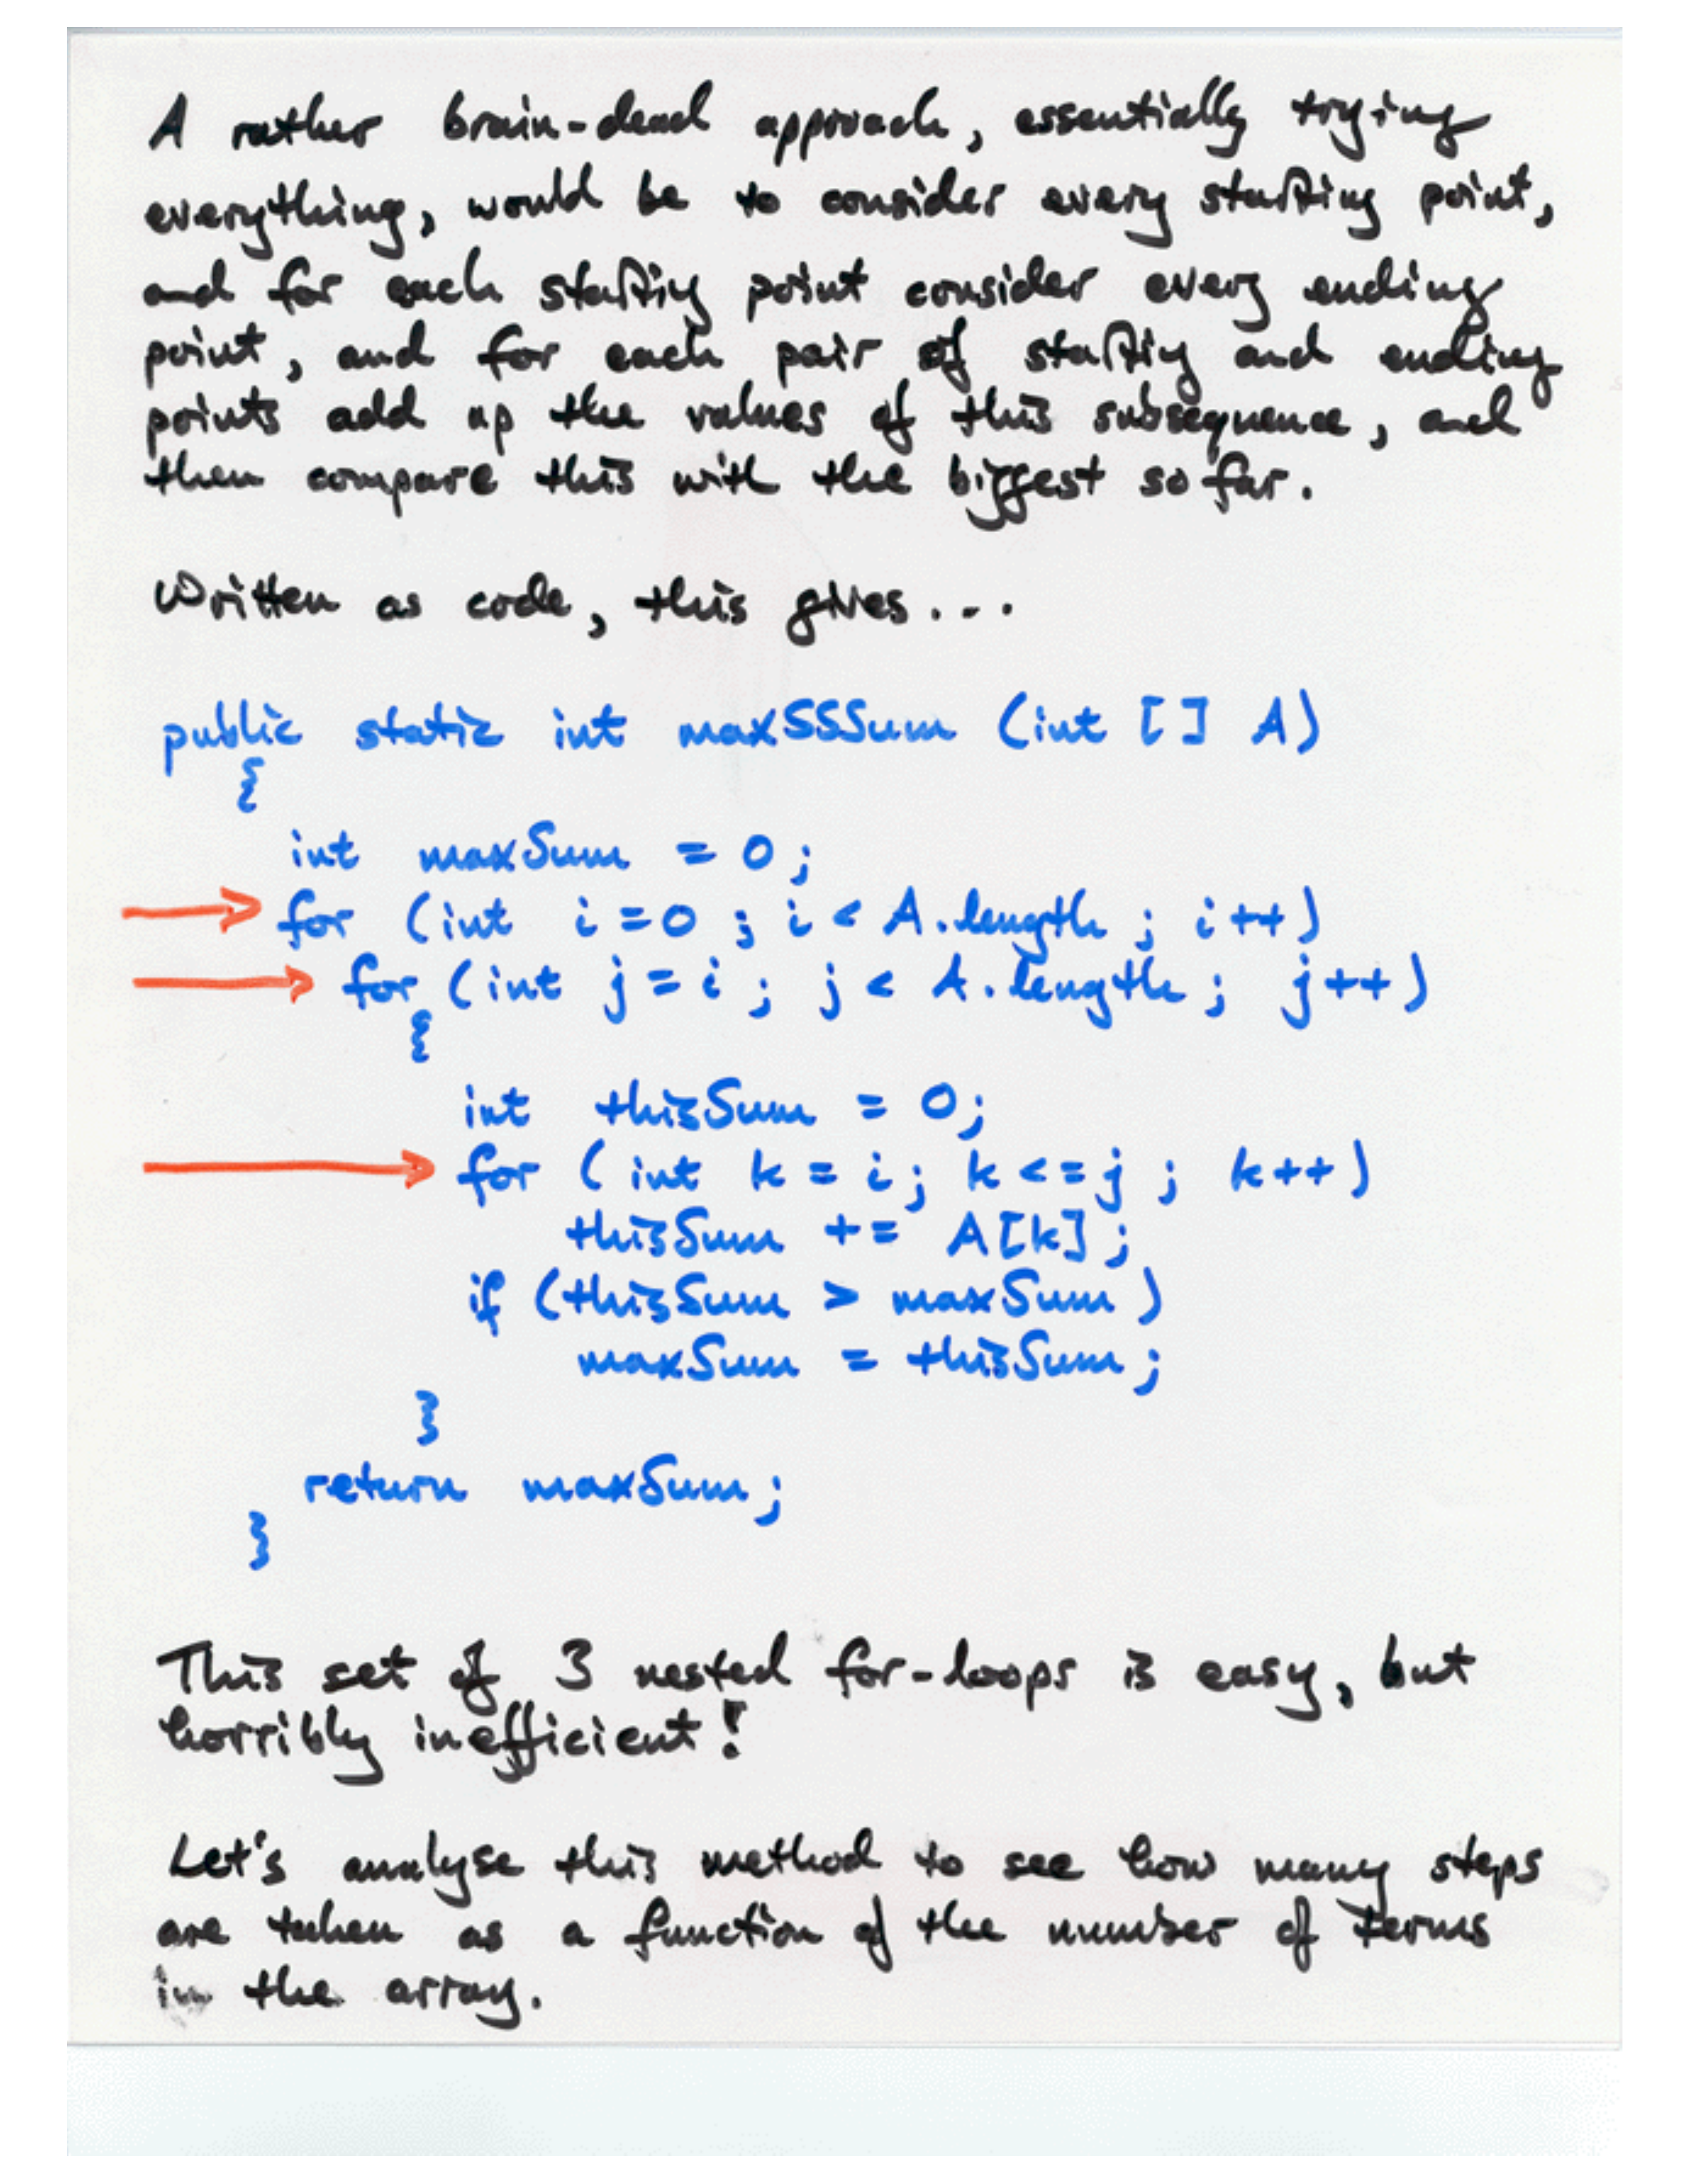 A rather brain-dead approach, essentially trying
everything, would be to consider every starting point,
and for each starting point consider every ending
point, and for each pair of starting and ending
points add up the values of this subsequence, and
then compare this with the biggest so far.
Written as code, this gives...
public static int maxSSSum (int [] A)
{
int maxSum = 0;
for (int i=0 ; i < A.length ; i++)
for (int j=i ; j < A.length ; j++)
{
int thisSum = 0;
for (int k = i; k <= j ; k++)
thisSum += A[k];
if (thisSum > maxSum)
maxSum = thisSum;
}
return maxSum;
}
This set of 3 nested for-loops is easy, but
horribly inefficient!
Let's analyse this method to see how many steps
are taken as a function of the number of terms
in the array.